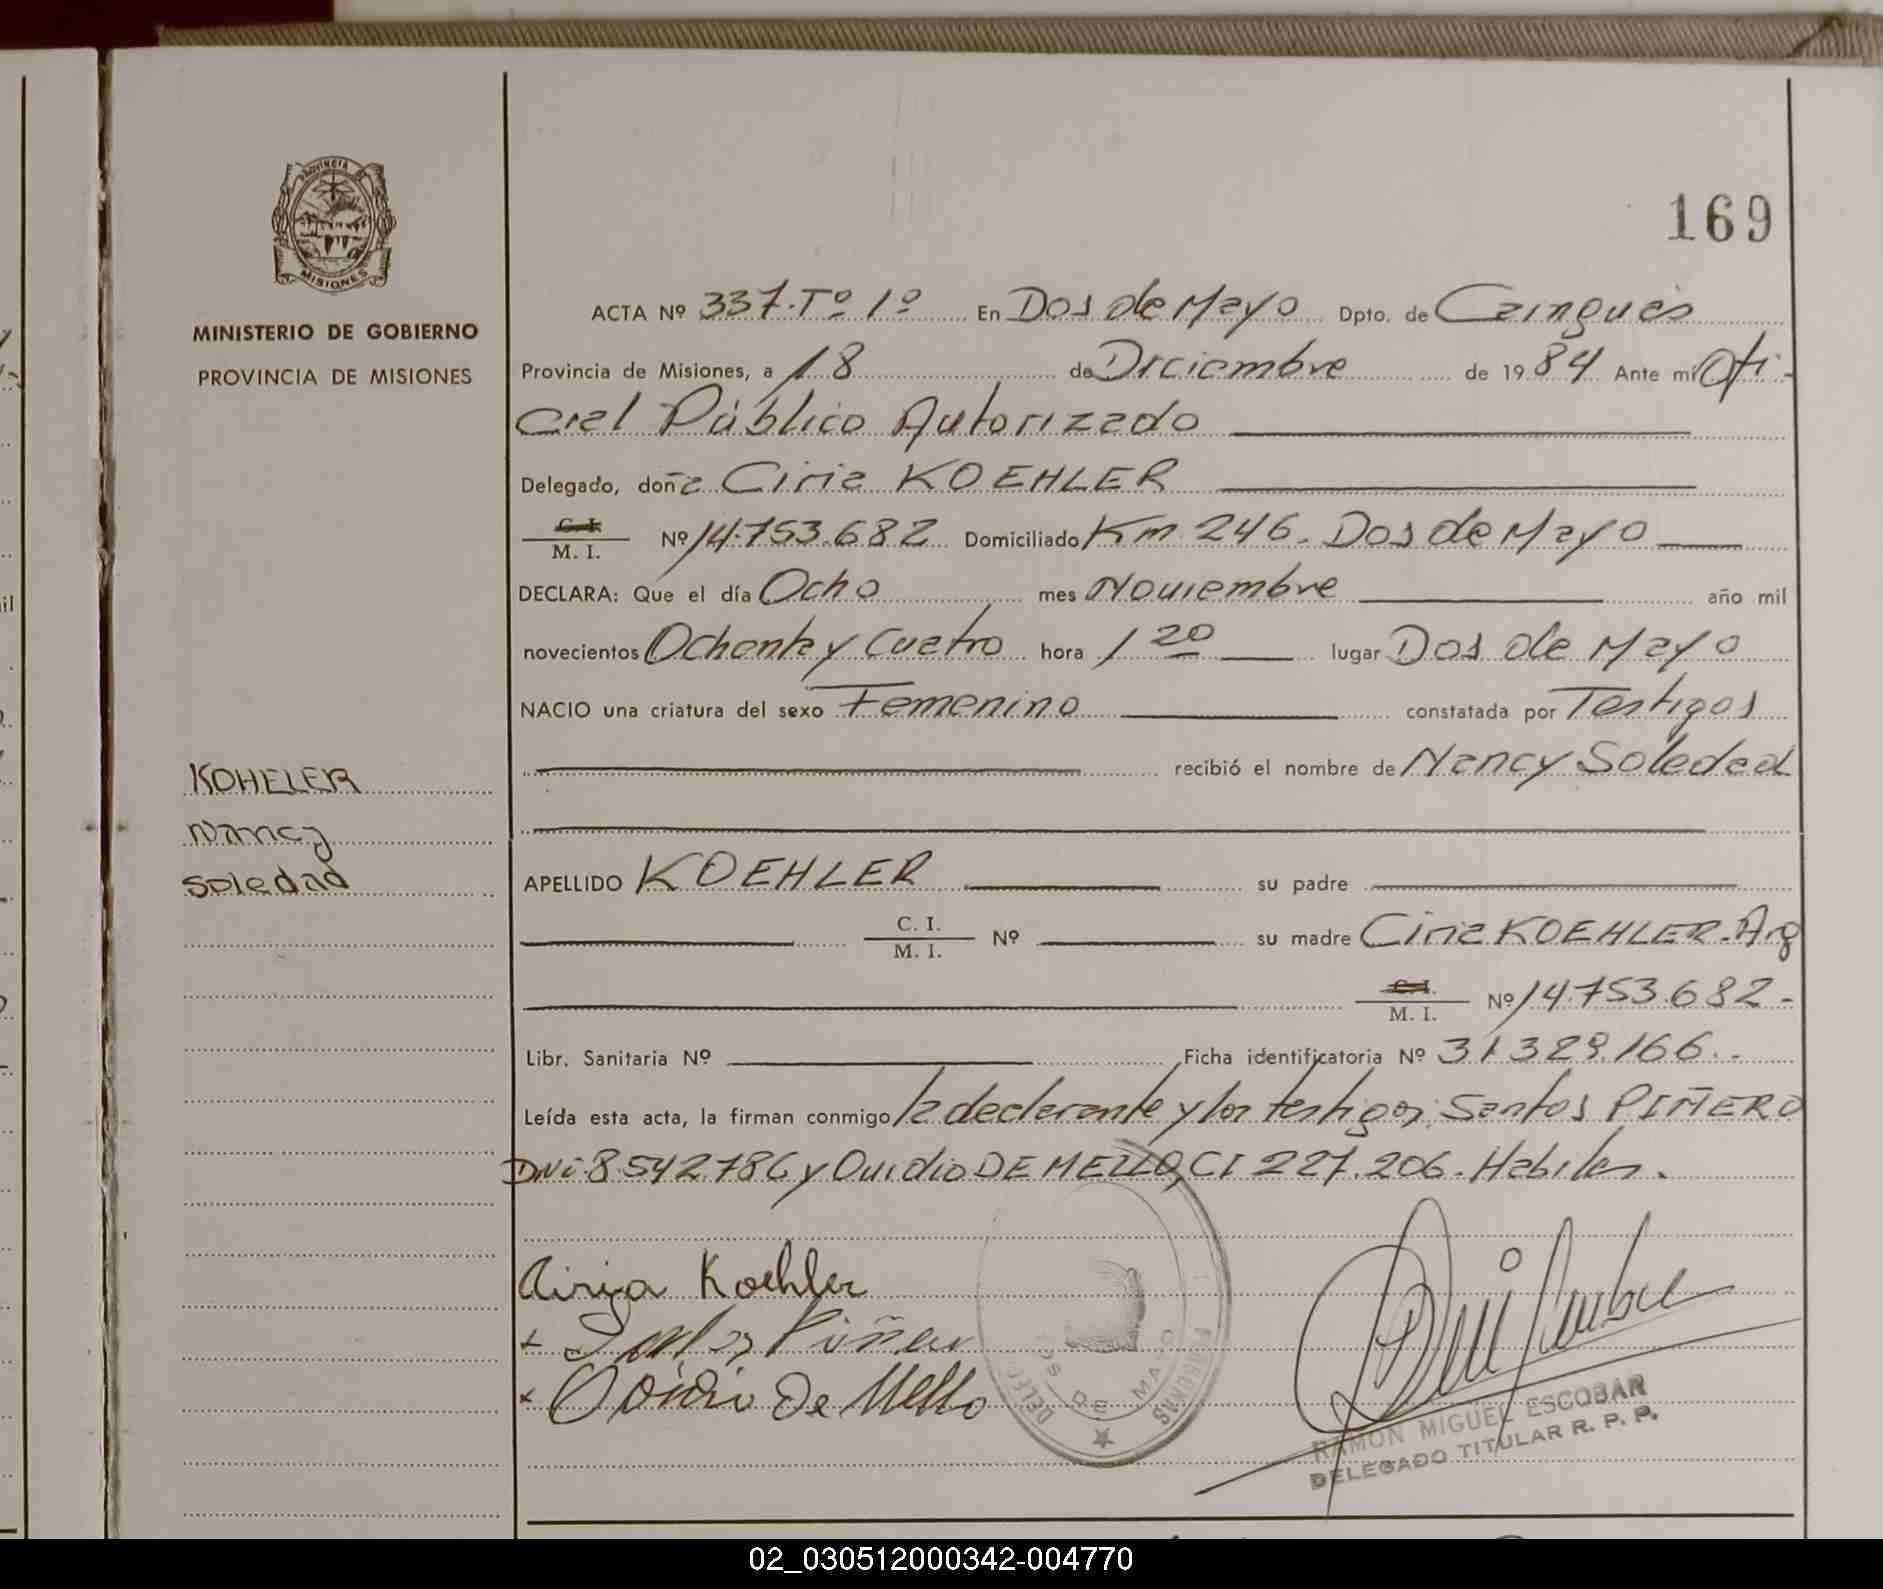 169
PROVINCIA DE
MISIONES
MINISTERIO DE GOBIERNO
PROVINCIA DE MISIONES
ACTA Nº 337.Tº 1º En Dos de Mayo Dpto. de Cainguás
Provincia de Misiones, a 18 de Diciembre de 1984 Ante mi Ofi-
cial Público Autorizado
Delegado, doña Ciria KOEHLER
C. I.
M. I. Nº 14.753.682 Domiciliado Km 246. Dos de Mayo
DECLARA: Que el día Ocho mes Noviembre año mil
novecientos Ochenta y Cuatro hora 1 20 lugar Dos de Mayo
NACIO una criatura del sexo Femenino constatada por Testigos
recibió el nombre de Nancy Soledad
KOHELER
Nancy
Soledad
APELLIDO KOEHLER su padre
C. I.
M. I. Nº su madre Ciria KOEHLER. Arg
C. I.
M. I. Nº 14.753.682-
Libr. Sanitaria Nº Ficha identificatoria Nº 31.329.166.-
Leída esta acta, la firman conmigo la declarante y los testigos; Santos PIÑERO
DNI. 8.542.786 y Ouidio DE MELLO, CI 227.206. Habiles.
Airija Koehler
+ Santos Piñero
+ Ovidio De Mello
DOS DE MAYO
RAMON MIGUEL ESCOBAR
DELEGADO TITULAR R. P. P.
02_030512000342-004770